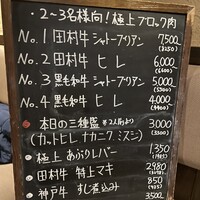 ・2~3名様向!極上ブロック肉
No.1 田村牛 シャトーブリアン 7500
(8250)
No.2 田村牛 ヒレ 6,000
(6600)
No.3 黒毛和牛 シャトーブリアン 5,000
(5500)
No.4 黒毛和牛 ヒレ 4,000
(4400)
● 本日の三種盛 ※2人前より 3000
(カットヒレ ナカニク ミスジ) (3300)
● 極上 あぶりレバー 1,350
● 田村牛 特上マキ 2980
● 神戸牛 すじ煮込み 850